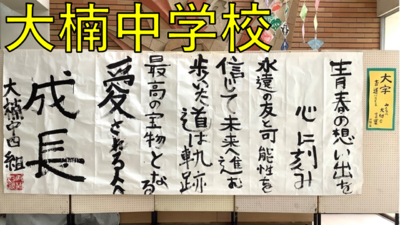 大楠中学校
青春の想い出を
心に刻み
永遠の友と可能性を
信じて未来へ進む
歩いた道は軌跡
最高の宝物となる
愛される人へ
成長
大楠中四組
大字